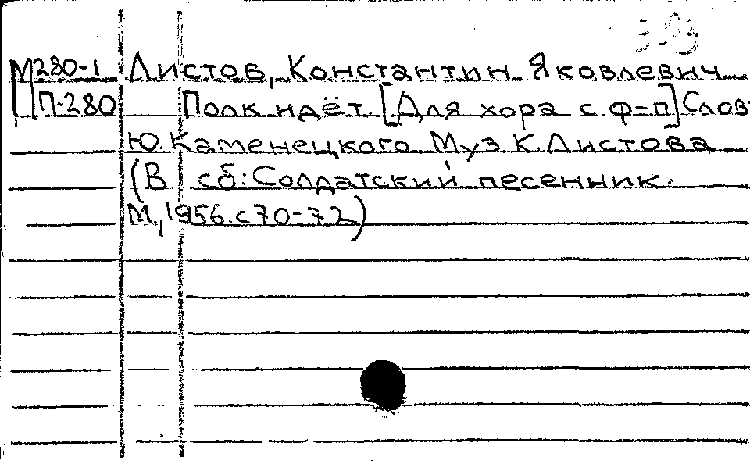 М280-1 Листов, Константин Яковлевич
П-280 Полк идёт. [Для хора с ф-п] Слов
Ю. Каменецкого Муз К. Листова
(В сб: Солдатский песенник.
М, 1956. с 70-72)